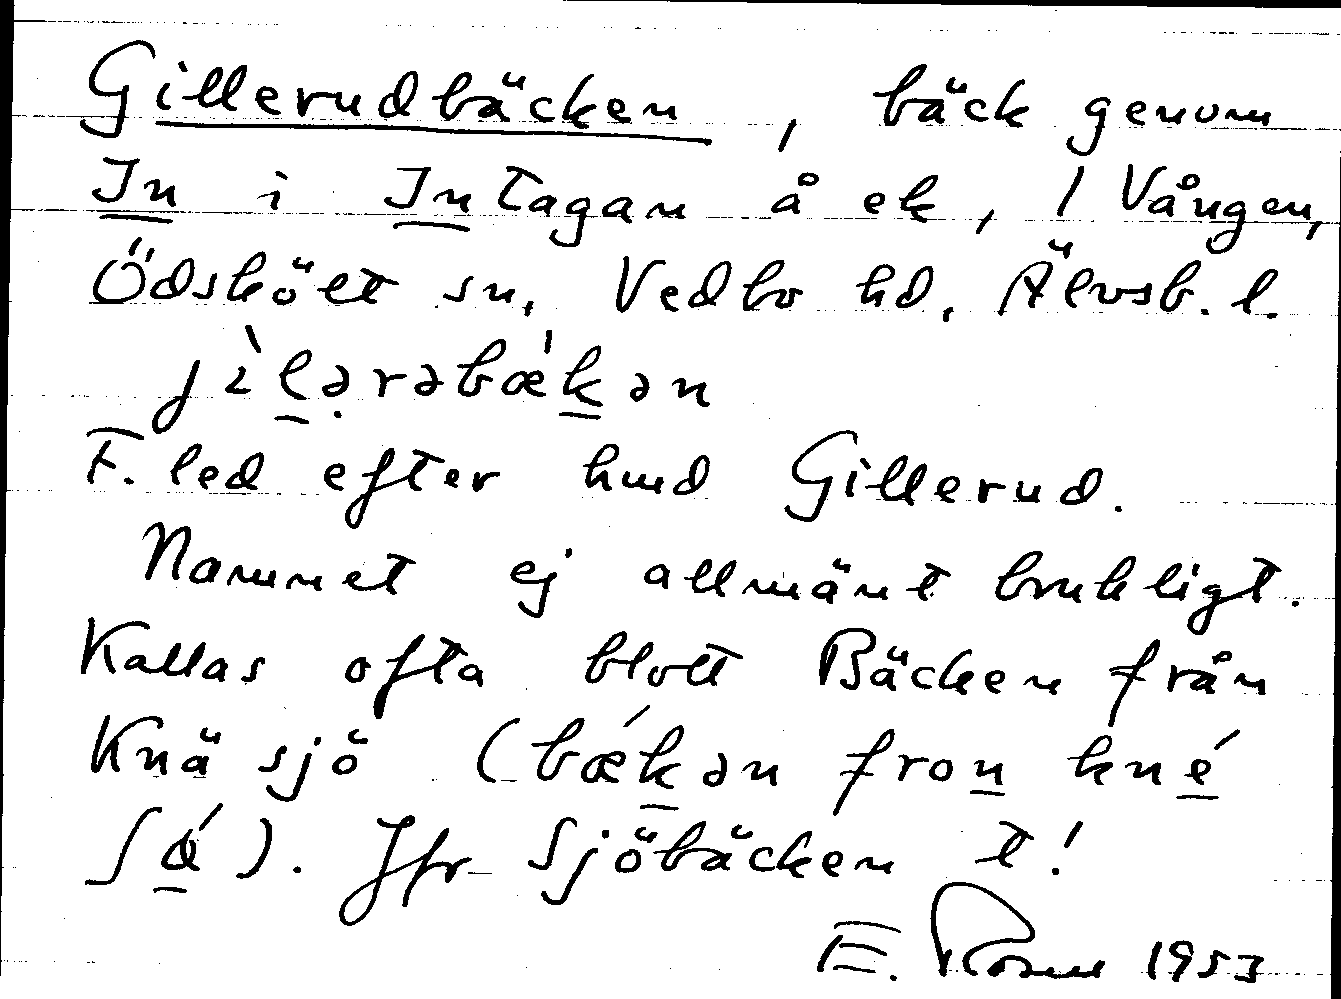 Gillerudbäcken, bäck genom
In i Intagan å ek, 1 Vången,
Ödskölt sn, Vedbo hd, Älvsb. l.
jìlərəbæ̀kən
F. led efter hmd Gillerud.
Namnet ej allmänt brukligt.
Kallas ofta blott Bäcken från
Knäsjö (bǽkən fron kné
ʃǿ). Jfr Sjöbäcken t!
E. 1953